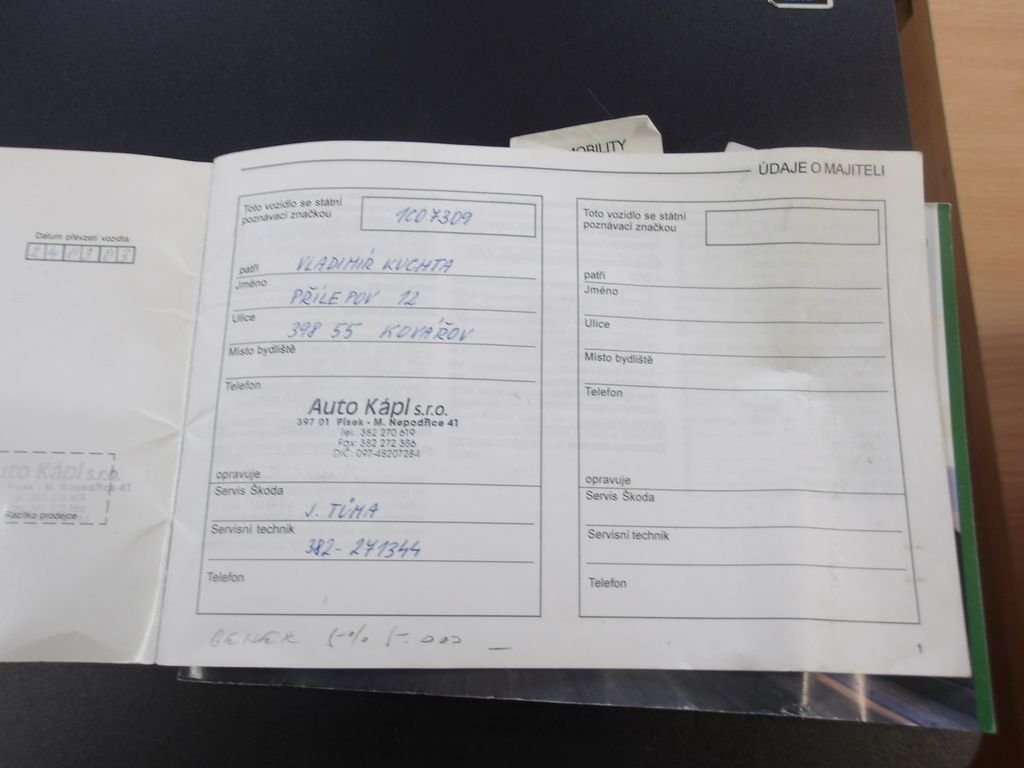 MOBILITY
Datum převzetí vozidla:
24 03 03
Auto Kápl s.r.o.
Písek - M. Nepodřice 41
Tel. 382 270 619
Razítko prodejce
ÚDAJE O MAJITELI
Toto vozidlo se státní
poznávací značkou
1C0 7309
patří
VLADIMÍR KUCHTA
Jméno
PŘÍLEPOV 12
Ulice
398 55 KOVÁŘOV
Místo bydliště
Telefon
Auto Kápl s.r.o.
397 01 Písek - M. Nepodřice 41
Tel. 382 270 619
Fax: 382 272 386
DIČ: 097-48207284
opravuje
Servis Škoda
J. TŮMA
Servisní technik
382-271344
Telefon
5.000
Toto vozidlo se státní
poznávací značkou
patří
Jméno
Ulice
Místo bydliště
Telefon
opravuje
Servis Škoda
Servisní technik
Telefon
1